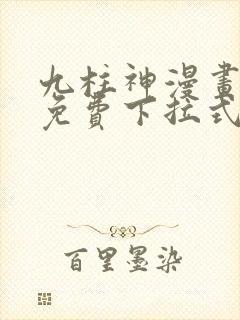 九柱神漫畫
免費下拉式
百里墨染